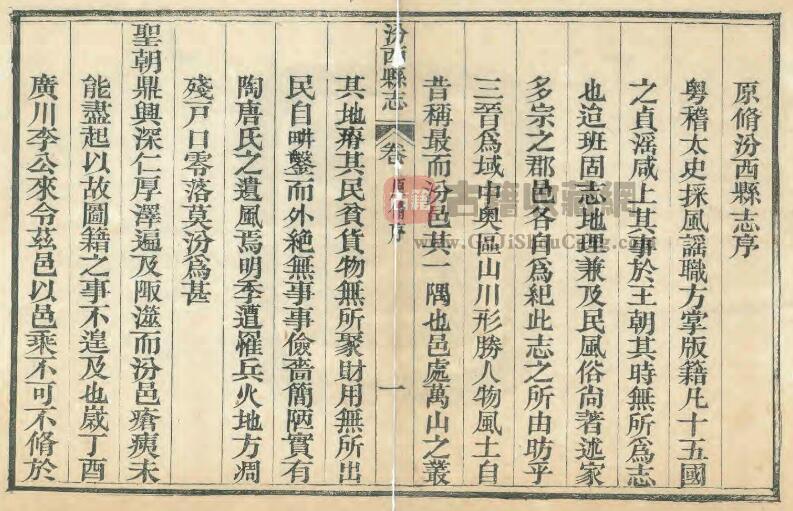 原脩汾西縣志序
粵稽太史採風謡職方掌版籍凡十五國
之貞滛咸上其事於王朝其時無所爲志
也迨班固志地理兼及民風俗尚著述家
多宗之郡邑各自爲紀此志之所由昉乎
三晉爲域中奧區山川形勝人物風土自
昔稱最而汾邑其一隅也邑處萬山之叢
汾西縣志 卷 序 一
其地瘠其民貧貨物無所聚財用無所出
民自畊鑿而外絶無事事儉嗇簡陋實有
陶唐氏之遺風焉明季遭罹兵火地方凋
殘戸口零落莫汾爲甚
聖朝鼎興深仁厚澤遍及陬澨而汾邑瘡痍未
能盡起以故圖籍之事不遑及也歲丁酉
廣川李公來令茲邑以邑乘不可不脩於
古籍收藏網
www.GuJiShuCang.com
古籍